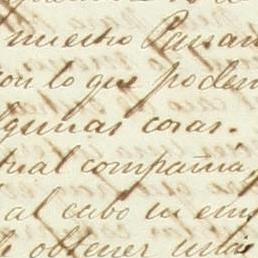 nuestro Pensam
con lo que podem
lgunas cosas.
tual compañia,
al cabo in ens
obtener